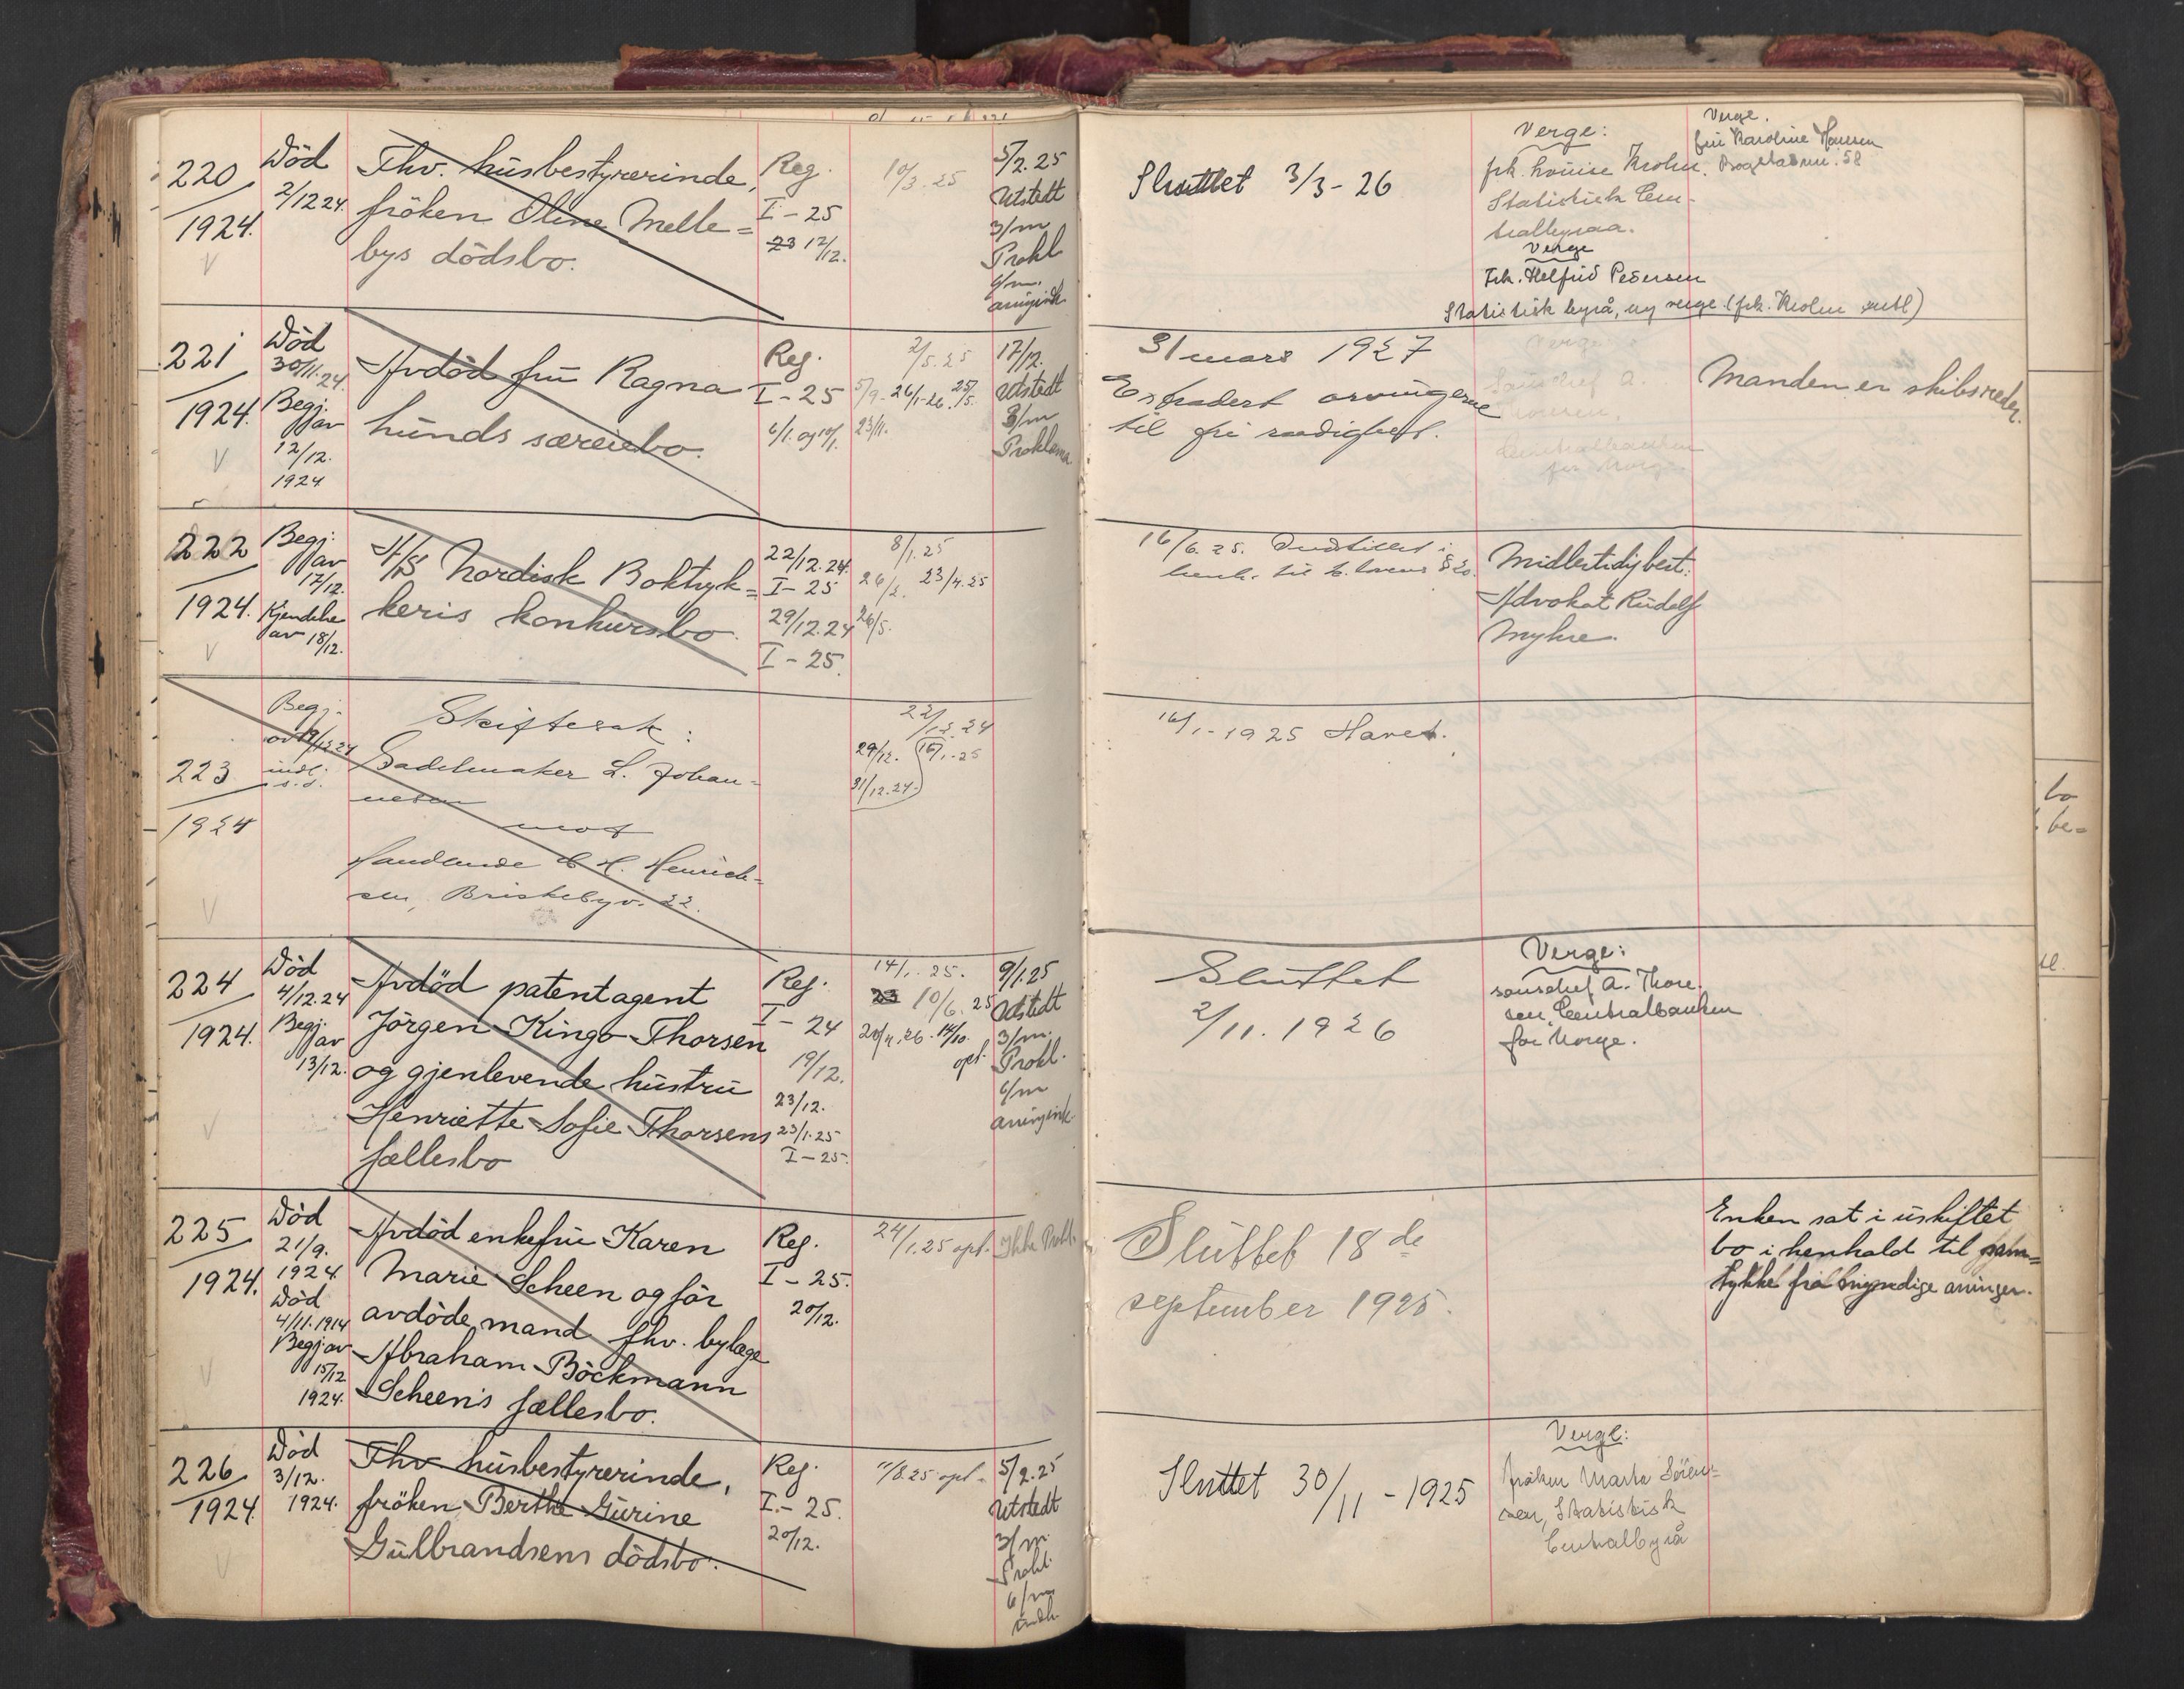 220
1924.
Död
2/12 24.
Fhv. husbestyrerinde,
fröken Oline Melle=
bys dödsbo.
Reg.
I - 25
23 12/12.
10/3. 25
5/2. 25
Utstedt
3/m
Prokl
6/m.
Sluttet 3/3 - 26
Verge:
frk. Louise Krohn.
Statistisk Cen-
tralbyraa.
Verge
Frk. Helfrid Pedersen
Statistisk byrå, ny verge. (frk. Krohn
Verge.
fru Karoline Hansen
221
1924.
Död
30/11.24.
Begj.
av
12/12.
1924
Avdöd fru Ragna
Lunds særeiebo.
Reg.
I - 25
6/1. og 10/1.
2/5. 25
5/9 - 26/1-26. 25/5.
23/11.
17/12.
Utstedt
3/m
Proklama
31 mars 1927
Extradert arvingerne
til fri raadighet.
Manden er skibsreder.
222
1924.
Begj.
av
17/12.
Kjendelse
av 18/12.
A/S Nordisk Boktryk=
keris konkursbo.
22/12.24.
I - 25
29/12.24
I - 25.
8/1.25
26/2. 23/4.25
26/5.
16/6. 25. Indstillet i
henh. til k. lovens §
Midlertidig best.
Advokat Rudolf
Myhre.
223
1924
Begj.
av 19/12 24
indl.
s. d.
Skiftesak:
Sadelmaker L. Johan-
nesen
mot
Handlende H. Henrich-
sen, Briskebyv. 22.
22/12. 24
29/12. 16/1.-25
31/12.24.
16/1.-1925 Hævet.
224
1924.
Död
4/12.24
Begj.
av
13/12.
Avdöd patentagent
Jörgen Kingo Thorsen
og gjenlevende hustru
Henriette Sofie Thorsens
fællesbo
Reg.
I - 24
19/12.
23/12.
23/1.25
I - 25.
14/1. 25.
23 10/6. 25
20/4. 26. 14/10.
opt.
9/1.25
Utstedt
3/m.
Prokl.
6/m
Sluttet
2/11. 1926
Verge:
Thore
sen, Centralbanken
for Norge.
225
1924.
Död
21/9.
1924.
Död
4/11.1914
Begj av
15/12
1924.
Avdöd enkefru Karen
Marie Scheen og för
avdöde mand fhv. bylæge
Abraham Böckmann
Scheens fællesbo.
Reg.
I - 25.
20/12.
24/1.25 opt.
Ikke Prokl.
Sluttet 18de
september 1925.
Enken sat i uskiftet
bo i henhold til sam=
tykke fra myndige arvinger.
226
1924.
Död
3/12.
1924.
Fhv husbestyrerinde,
fröken Berthe Gurine
Gulbrandsens dödsbo.
Reg.
I - 25.
20/12.
11/8.25 opt.
5/2.25
Utstedt
3/m.
Prokl.
6/m
Sluttet 30/11 - 1925
Verge:
fröken Marta Sören-
sen, Statistisk
Centralbyrå
bo
be=